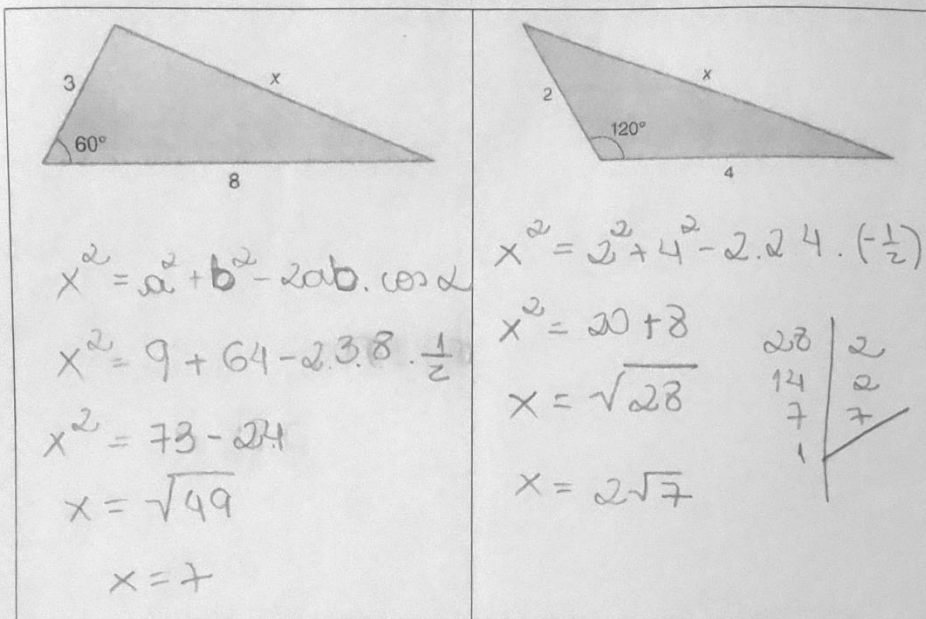 3
x
60°
8
x² = a² + b² - 2ab . cos α
x² = 9 + 64 - 2.3.8 . 1/2
x² = 73 - 24
x = √49
x = 7
2
x
120°
4
x² = 2² + 4² - 2.2 4 . (-1/2)
x² = 20 + 8
x = √28
x = 2√7
28 | 2
14 | 2
7 | 7
1